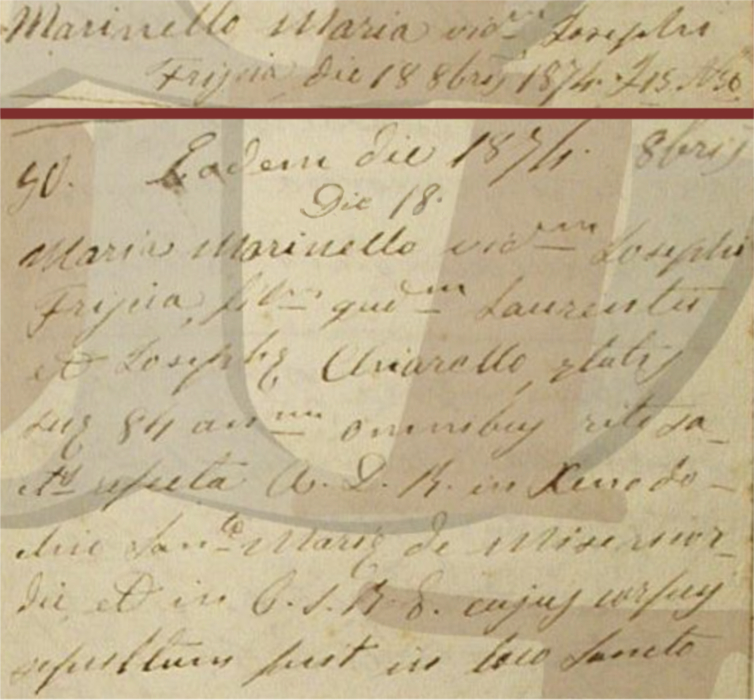 Marinello Maria vid.m Josephi
Frijia die 18 8bris 1874. F 15. N 50
50. Eadem die 1874. 8bris
Die 18.
Maria Marinello vid.m Josephi
Frijia, fil.m qud.m Laurentii
et Josephę Chiarello, ętatis
suę 84 an.m omnibus rite sa-
refecta A. D. R. in Xenodo-
chio San.tę Marię de Misericor-
dię et in C. S. R. E. cujus corpus
sepultum fuit in loco Sancto